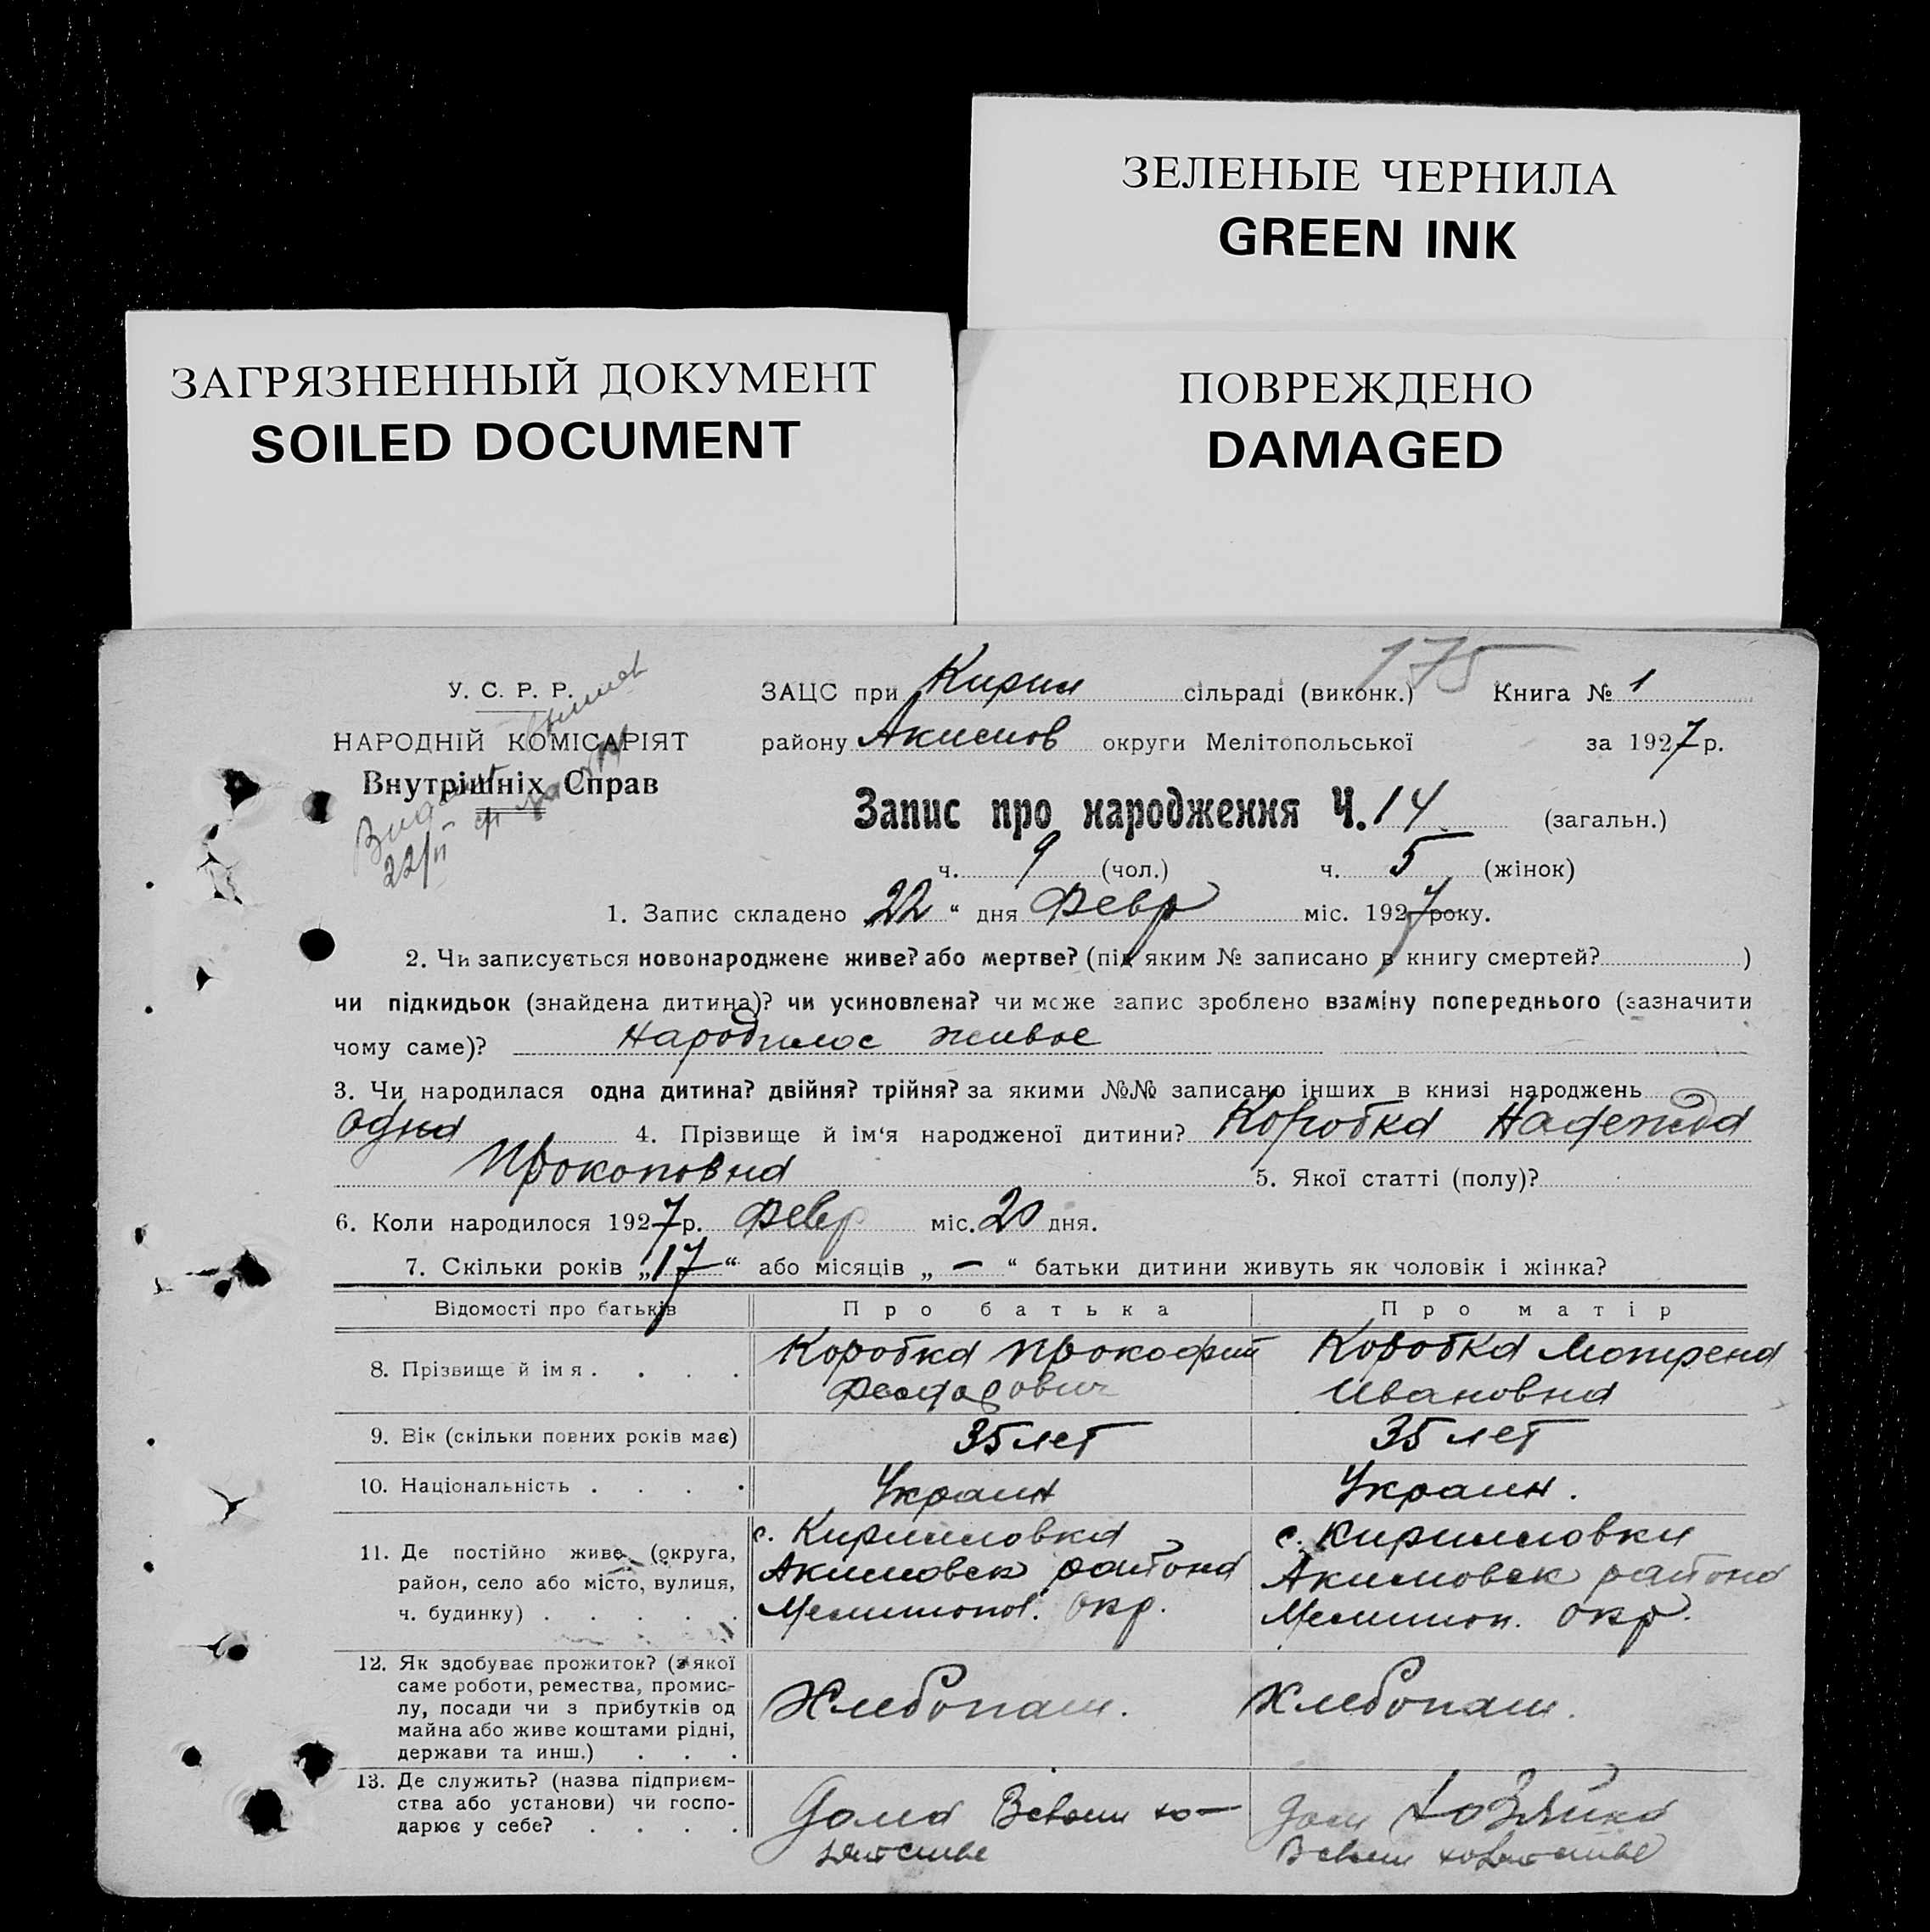 ЗЕЛЕНЫЕ ЧЕРНИЛА
GREEN INK
ЗАГРЯЗНЕННЫЙ ДОКУМЕНТ
SOILED DOCUMENT
ПОВРЕЖДЕНО
DAMAGED
175
У. С. Р. Р.
НАРОДНІЙ КОМІСАРІЯТ
Внутрішніх Справ
22/II
ЗАЦС при Кирил сільраді (виконк.) Книга № 1
району Акимов округи Мелітопольської за 1927 р.
Запис про народження Ч. 14 (загальн.)
ч. 9 (чол.) ч. 5 (жінок)
1. Запис складено „22“ дня Февр міс. 1927 року.
2. Чи записується новонароджене живе? або мертве? (під яким № записано в книгу смертей? )
чи підкидьок (знайдена дитина)? чи усиновлена? чи може запис зроблено взаміну попереднього (зазначити
чому саме)? Народилос живое
3. Чи народилася одна дитина? двійня? трійня? за якими №№ записано інших в книзі народжень
одна 4. Прізвище й ім‘я народженої дитини? Коробка Надежда
Прокоповна 5. Якої статті (полу)?
6. Коли народилося 1927 р. Февр міс. 20 дня.
7. Скільки років „17“ або місяців „ — “ батьки дитини живуть як чоловік і жінка?
Відомості про батьків Про батька Про матір
8. Прізвище й імя . . . . Коробка Прокофий Коробка Мотрена
Ивановна
9. Вік (скільки повних років має) 35 лет 35 лет
10. Національність . . . . Украин Украин.
11. Де постійно живе (округа, с. Кирилловка с. Кирилловки
район, село або місто, вулиця, Акимовск района Акимовск района
ч. будинку) . . . . . Мелитопол. Окр. Мелитоп. Окр.
12. Як здобуває прожиток? (з якої
саме роботи, ремества, промис-
лу, посади чи з прибутків од Хлебопаш. Хлебопаш.
майна або живе коштами рідні,
держави та инш.) . . .
13. Де служить? (назва підприєм-
ства або установи) чи госпо- Дома Всвоем хо- Хозяйка
дарює у себе? . . . . зяйстве Всвоем хозяйстве